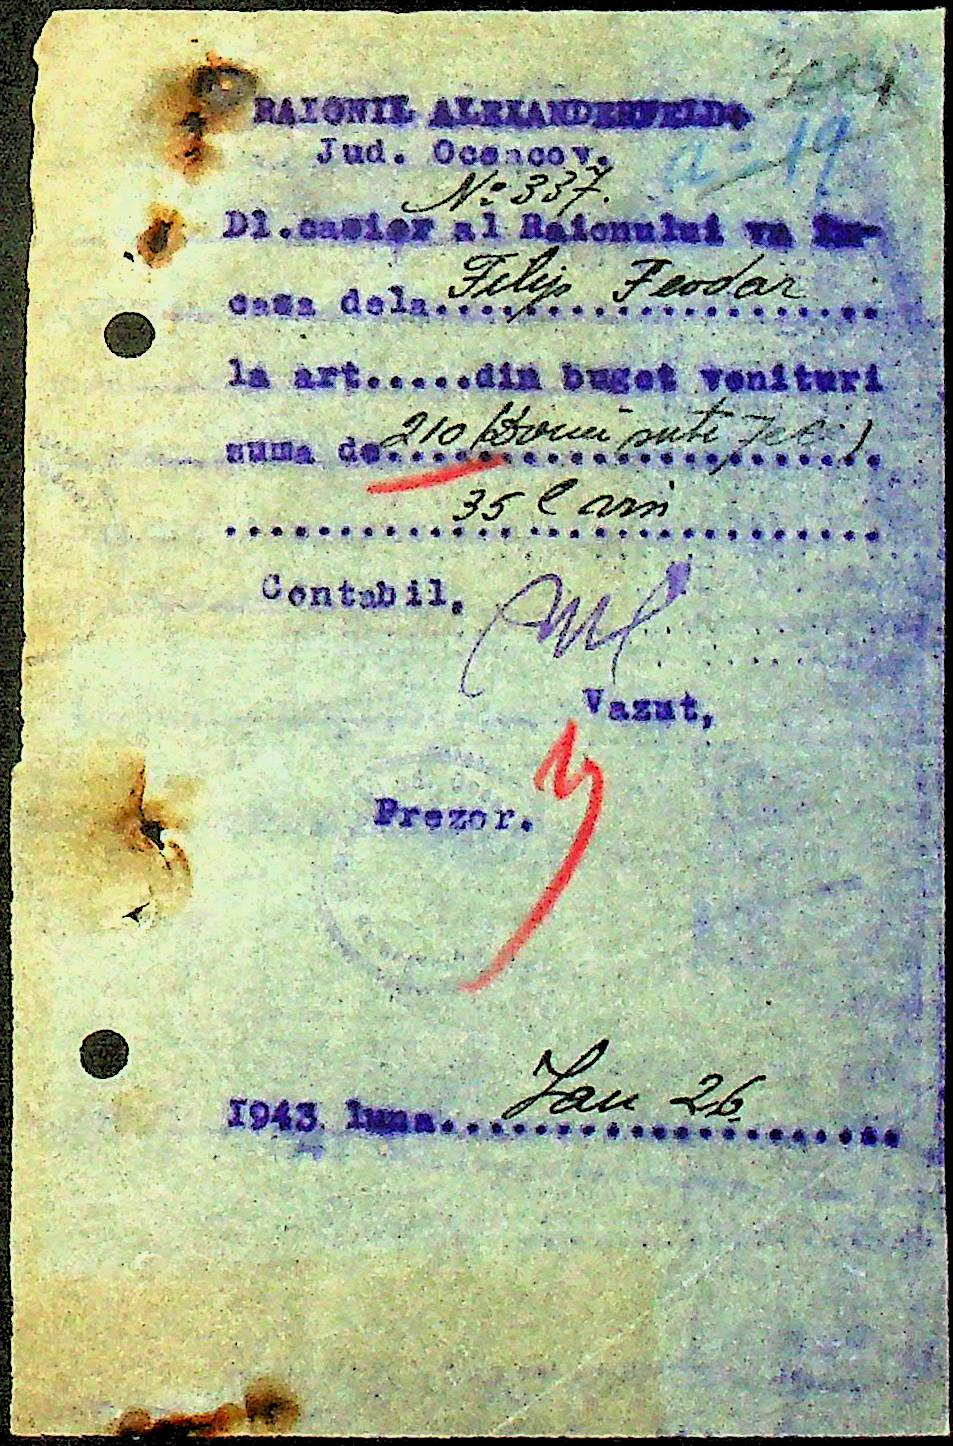 RAIONUL ALEXANDERFELD.
a=19
Jud. Oceacov.
No: 337.
Dl.casier al Raionului va in-
casa dela....Filip Feodar....
la art.....din buget venituri
suma de 210 (Doui suti zece)
35 l
Contabil,
Vazut,
Prezor.
1943. luna....Jan 26....